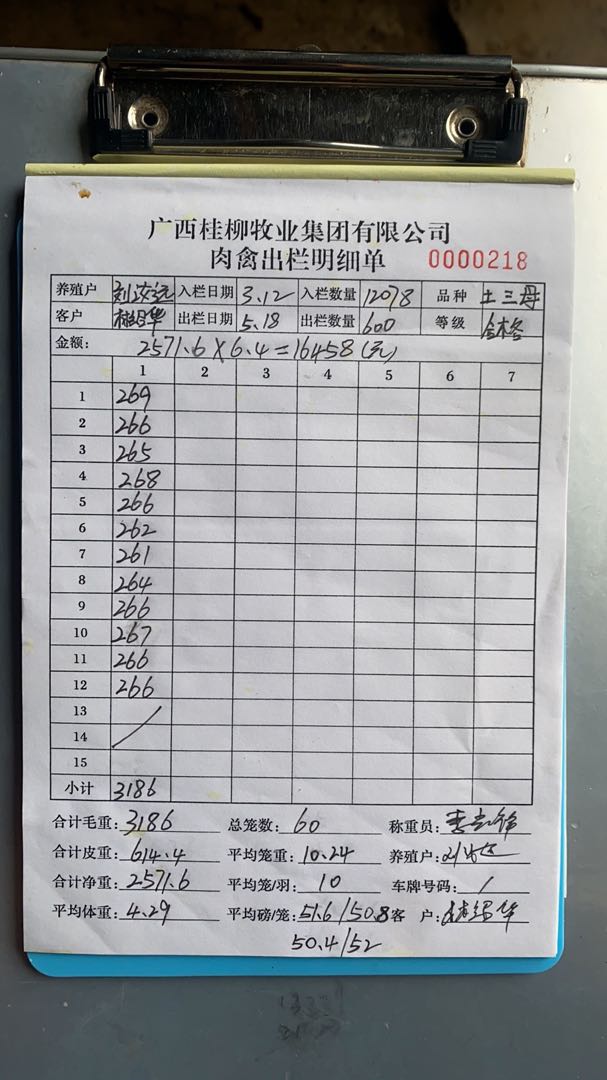 广西桂柳牧业集团有限公司
肉禽出栏明细单 0000218
养殖户 入栏日期 3.12 入栏数量 12078 品种 土三母
客户 华 出栏日期 5.18 出栏数量 600 等级 合格
金额: 2571.6×6.4=16458(元)
1 2 3 4 5 6 7
1 269
2 266
3 265
4 268
5 266
6 262
7 261
8 264
9 266
10 267
11 266
12 266
13
14
15
小计 3186
合计毛重: 3186 总笼数: 60 称重员:
合计皮重: 614.4 平均笼重: 10.24 养殖户:
合计净重: 2571.6 平均笼/羽: 10 车牌号码: /
平均体重: 4.29 平均磅/笼: 51.6/50.8 客 户: 华
50.4/52